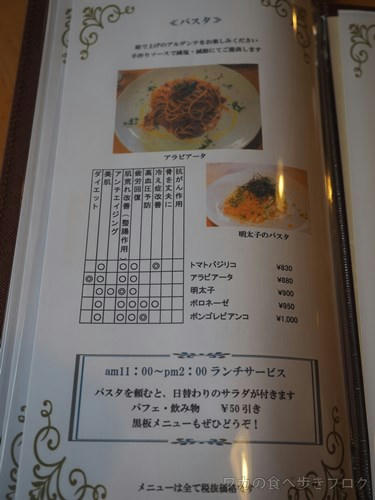 ≪パスタ≫
茹で上げのアルデンテをお楽しみください
手作りソースで減塩・減糖にてご提供します
アラビアータ
明太子のパスタ
抗がん作用
骨を丈夫に
冷え症改善
高血圧予防
疲労回復
肌荒れ改善（整腸作用）
アンチエイジング
美肌
ダイエット
トマトバジリコ ¥830
アラビアータ ¥880
明太子 ¥900
ボロネーゼ ¥950
ボンゴレビアンコ ¥1,000
am11：00～pm2：00 ランチサービス
パスタを頼むと、日替わりのサラダが付きます
パフェ・飲み物 ¥50引き
黒板メニューもぜひどうぞ！
メニューは全て税抜価格
ワカの食べ歩きブログ